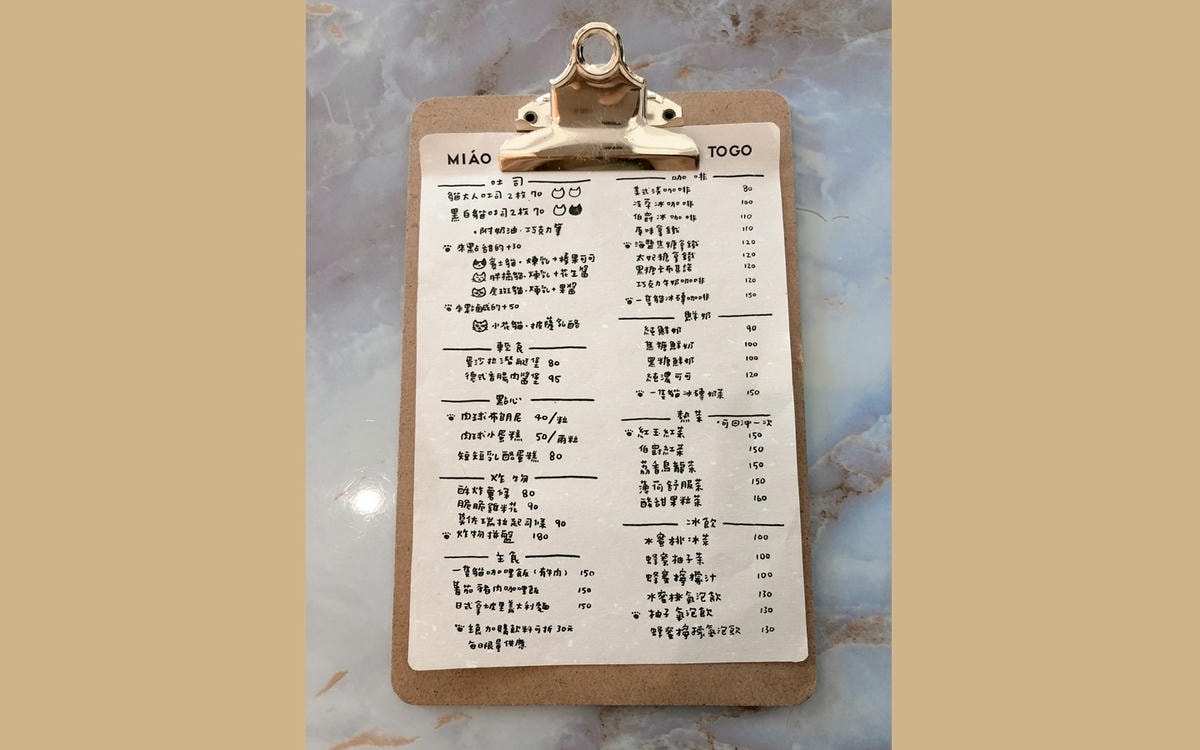 MIÁO
TOGO
吐司
貓大人吐司2枚 70
黑白貓吐司2枚 70
•附奶油·巧克力筆
來點甜的+30
賓士貓·煉乳+榛果可可
胖橘貓·煉乳+花生醬
虎斑貓·煉乳+果醬
來點鹹的+50
小花貓·披薩乳酪
輕食
蛋沙拉潛艇堡 80
德式香腸肉醬堡 95
點心
肉球布朗尼 40/粒
肉球小蛋糕 50/兩粒
短短乳酪蛋糕 80
炸物
酥炸薯條 80
脆脆雞米花 90
莫佐瑞拉起司條 90
炸物拼盤 180
主食
一隻貓咖哩飯(有牛肉) 150
蕃茄豬肉咖哩飯 150
日式拿坡里義大利麵 150
主食加購飲料可折30元
每日限量供應
咖啡
美式淡咖啡 80
冰萃冰咖啡 100
伯爵冰咖啡 110
原味拿鐵 110
海鹽焦糖拿鐵 120
太妃糖拿鐵 120
黑糖卡布其諾 120
巧克力牛奶咖啡 120
一隻貓冰磚咖啡 150
鮮奶
純鮮奶 90
焦糖鮮奶 100
黑糖鮮奶 100
純濃可可 120
一隻貓冰磚奶茶 150
熱茶
•可回沖一次
紅玉紅茶 150
伯爵紅茶 150
荔香烏龍茶 150
薄荷舒服茶 150
酸甜果粒茶 160
冰飲
水蜜桃冰茶 100
蜂蜜柚子茶 100
蜂蜜檸檬汁 100
水蜜桃氣泡飲 130
柚子氣泡飲 130
蜂蜜檸檬氣泡飲 130